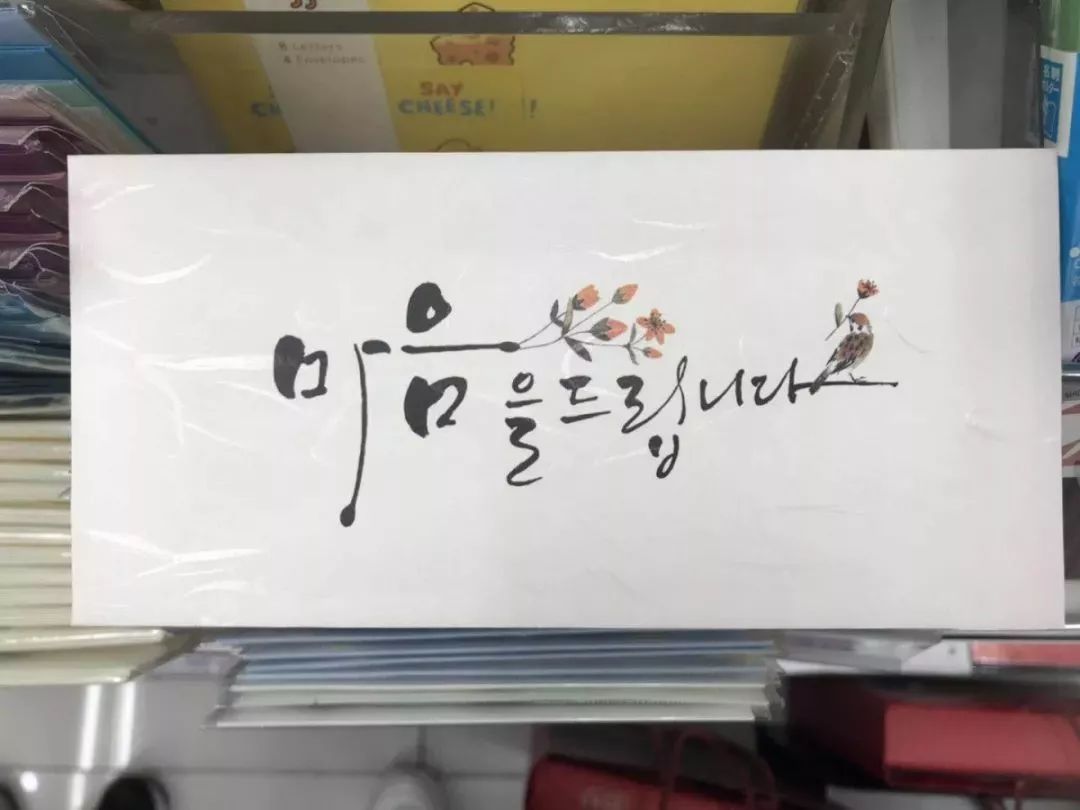 8 Letters
4 Envelopes
SAY
CHEESE!
마음을드립니다